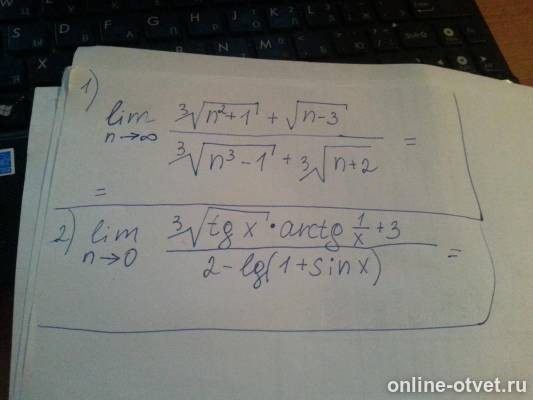 1)
lim n→∞ (∛(n²+1) + √(n-3)) / (∛(n³-1) + ∛(n+2)) =
=
2) lim n→0 (∛(tg x) · arctg 1/x + 3) / (2 - lg(1+sin x)) =
online-otvet.ru